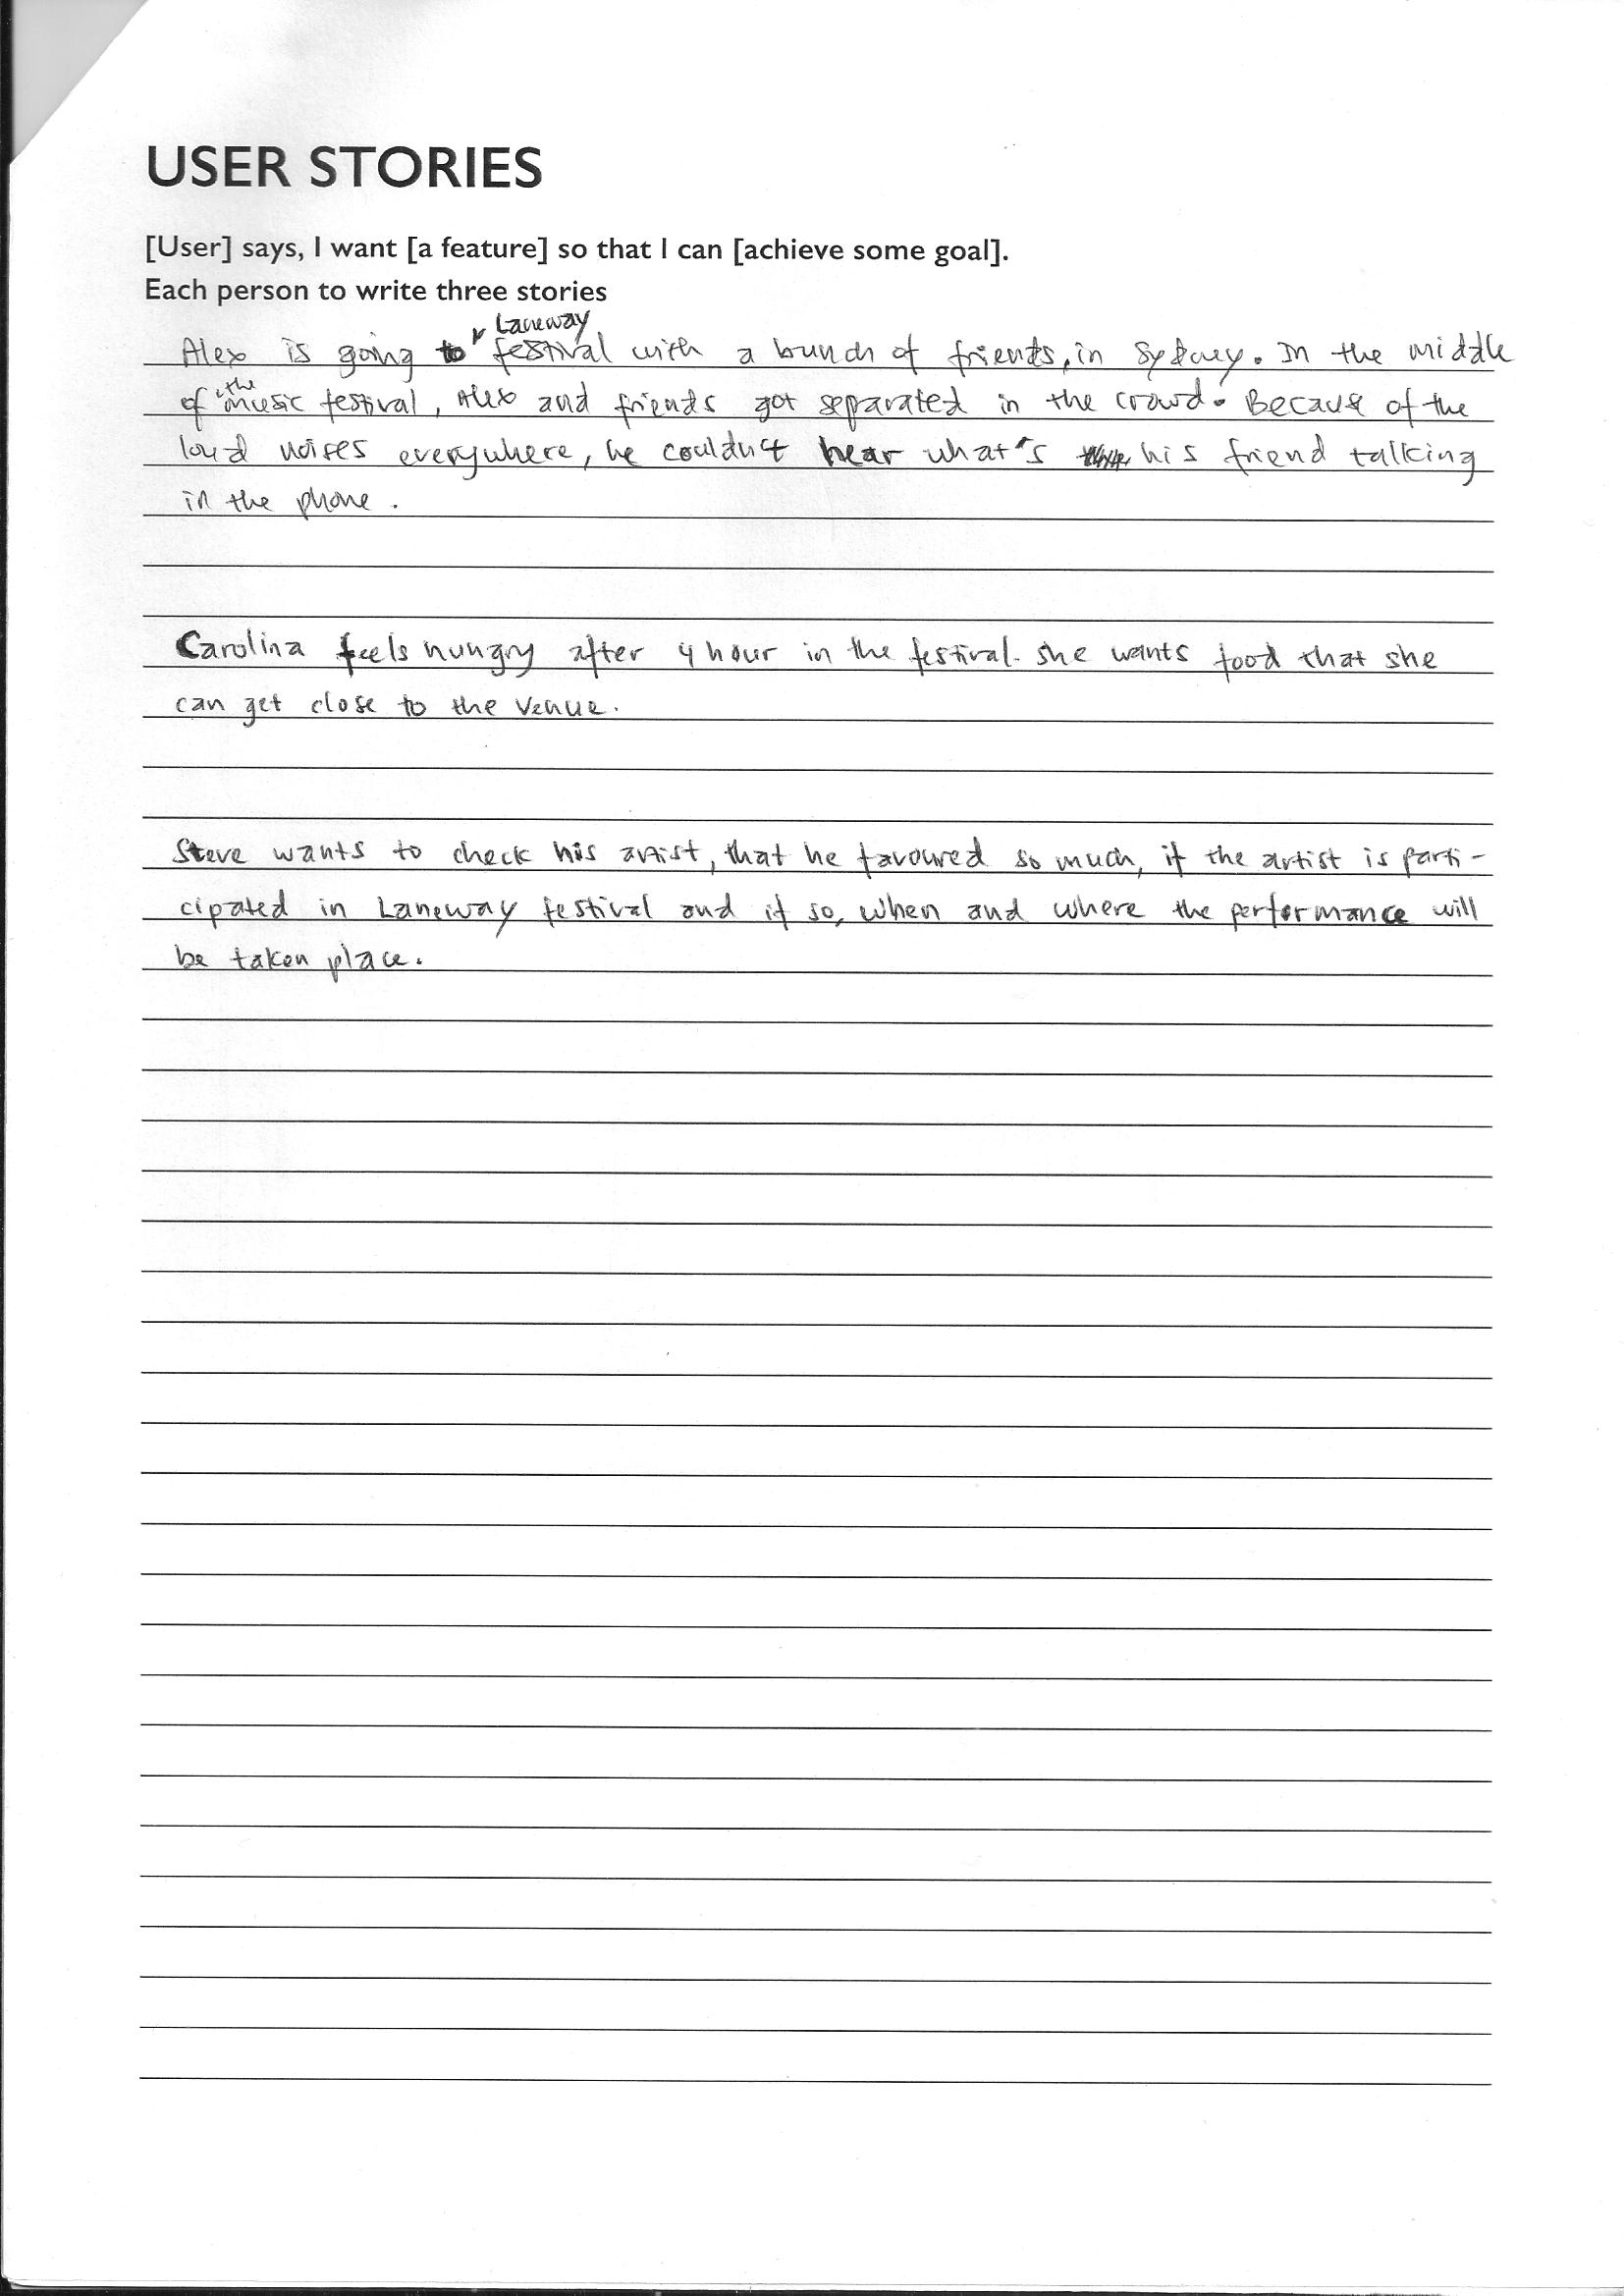 USER STORIES
[User] says, I want [a feature] so that I can [achieve some goal].
Each person to write three stories
Alex is going to Laneway festival with a bunch of friends, in Sydney. In the middle
of the music festival, Alex and friends got separated in the crowd. Because of the
loud noises everywhere, he couldn't hear what's his friend talking
in the phone.
Carolina feels hungry after 4 hour in the festival. she wants food that she
can get close to the venue.
Steve wants to check his artist, that he favoured so much, if the artist is parti-
cipated in Laneway festival and if so, when and where the performance will
be taken place.